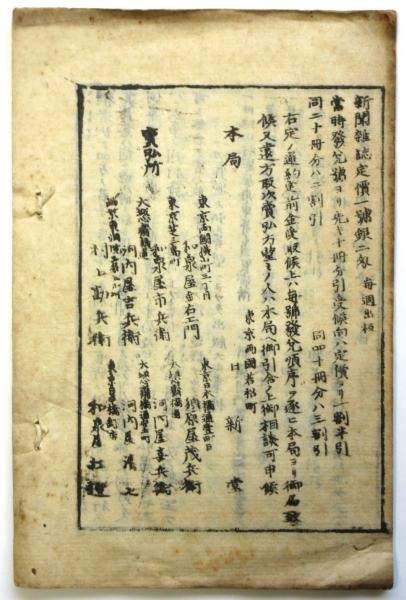 新聞雜誌定價一號銀二匁 每週出板
當時發兌號ヨリ先キ十冊分引受候向ハ定價ノ一割半引
同二十冊分ハ二割引 同四十冊分ハ三割引
右定ノ通約定前金受取候上ハ每號發兌順序ヲ逐ヒ本局ヨリ御届
候又遠方取次賣弘方望ミノ人ハ本局ヘ御引合ノ上御相談可申候
東京兩國若松町
本局 日新堂
賣弘所
東京兩國橫山町三丁目
和泉屋金右エ門
東京芝三島町
和泉屋市兵衛
大坂心齋橋通
河內屋吉兵衛
村上勘兵衛
東京日本橋通壹丁目
須原屋茂兵衛
大坂心齋橋通
河內屋喜兵衛
河內屋
和泉屋